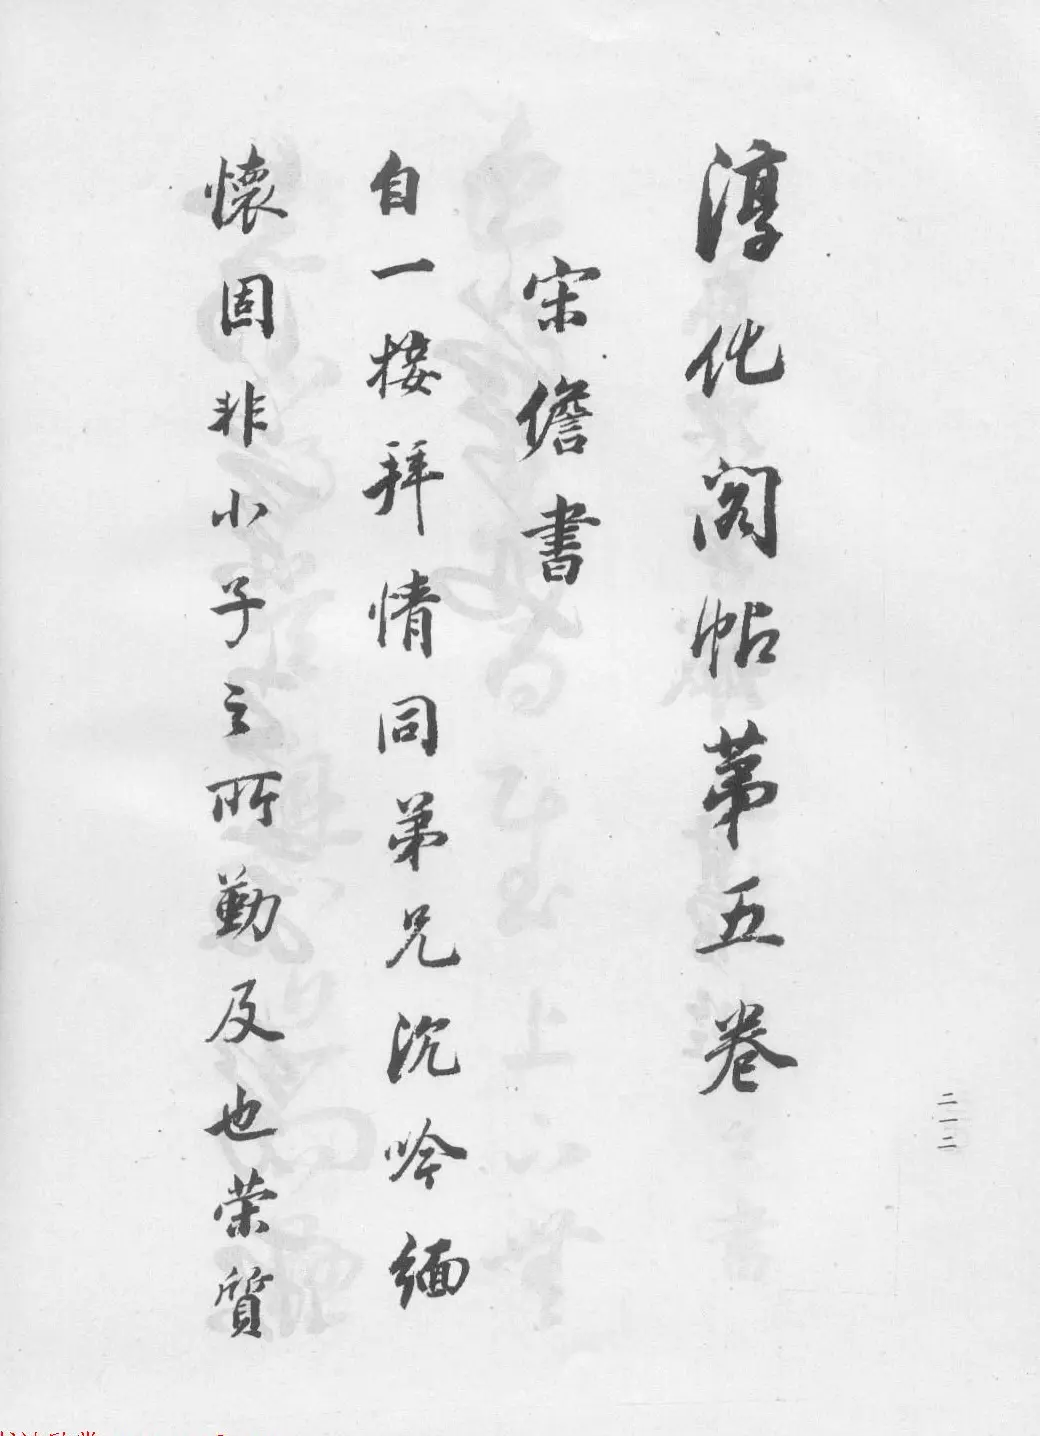 淳化阁帖第五卷
宋儋書
自一接拜情同弟兄沉吟緬
懷固非小子之所勤及也荣質
二一二